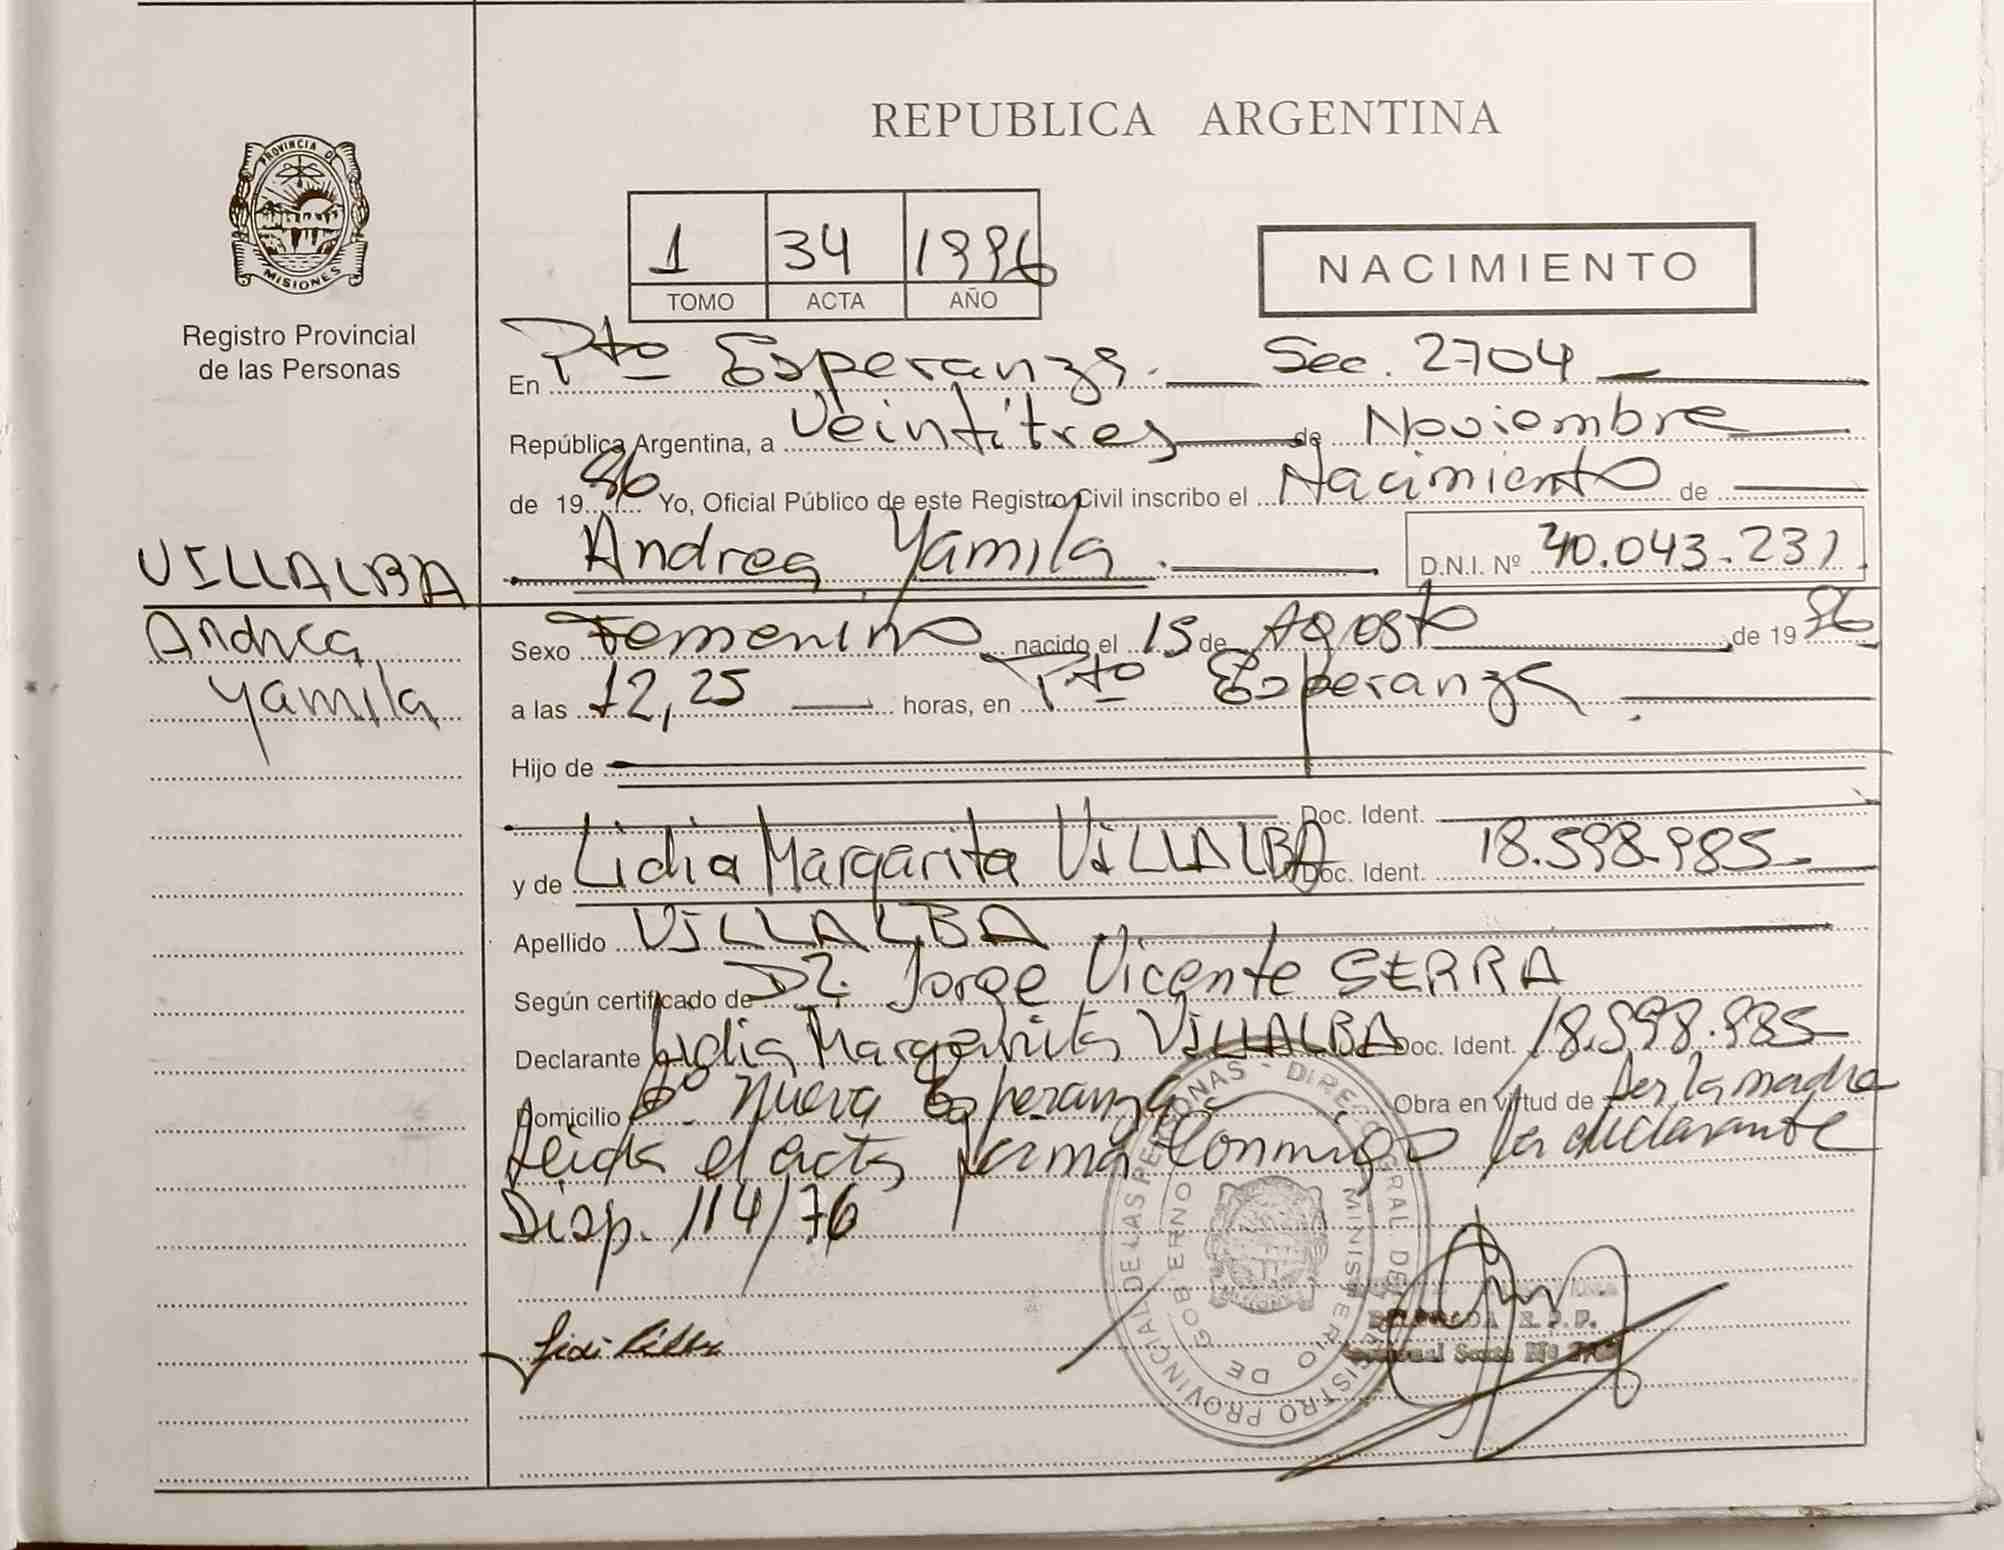 PROVINCIA DE
MISIONES
Registro Provincial
de las Personas
VILLALBA
Andrea
Yamila
REPUBLICA ARGENTINA
1 34 1996
TOMO ACTA AÑO
NACIMIENTO
En Pto Esperanza. Sec. 2704
República Argentina, a Veintitres de Noviembre
de 1996 Yo, Oficial Público de este Registro Civil inscribo el Nacimiento de
Andrea Yamila. D.N.I. Nº 40.043.231
Sexo Femenino nacido el 15 de Agosto de 1996
a las 12,25 horas, en Pto Esperanza
Hijo de
Doc. Ident.
y de Lidia Margarita VILLALBA Doc. Ident. 18.598.985
Apellido VILLALBA
Según certificado de Dr. Jorge Vicente SERRA
Declarante Lidia Margarita VILLALBA Doc. Ident. 18.598.985
Domicilio Bº Nueva Esperanza Obra en virtud de ser la madre
Leida el acta firma conmigo la declarante
Disp. 114/76
REGISTRO PROVINCIAL DE LAS PERSONAS - DIRECCION GENERAL DE
MINISTERIO DE GOBIERNO